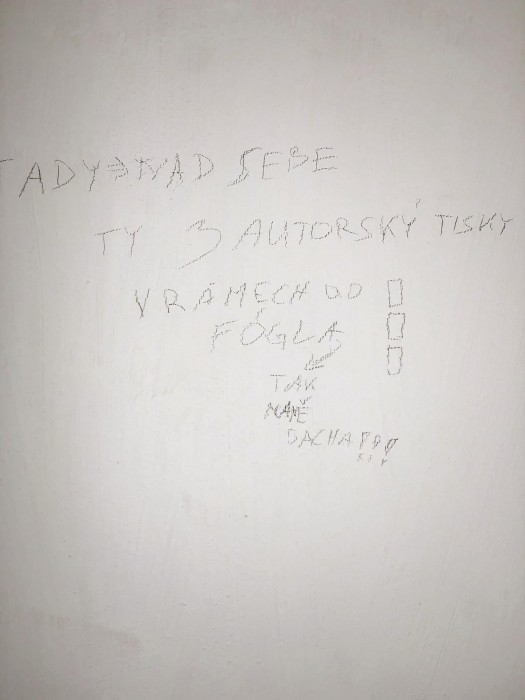 TADY → NAD SEBE
TY 3 AUTORSKÝ TISKY
V RÁMECH OD
FÓGLA
TAK
NANĚ
BACHA!!!